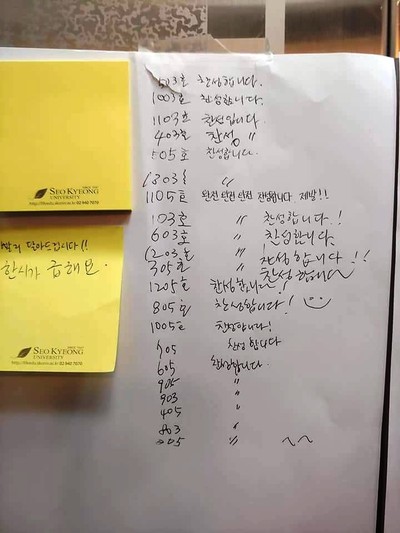 503호 찬성합니다.
1003호 찬성합니다.
1103호 찬성입니다.
403호 찬성 〃
505호 찬성합니다.
1303호 〃
1105호 완전 완전 완전 찬성합니다. 제발!!
103호 〃 찬성합니다.!
603호 〃 찬성합니다.
1203호 〃 찬성합니다!!
305호 〃 찬성합니다
1205호 찬성합니다!
805호 찬성합니다!
1005호 찬성합니다!
705 찬성합니다
605 찬성합니다.
905 〃
903 〃
405 〃
803 〃
205 〃 ~~
SEO KYEONG
UNIVERSITY
http://thebuks.skuniv.ac.kr 02 940 7070
빨리 달아드립니다!!
한시가 급해요.
SEO KYEONG
UNIVERSITY
02 940 7070